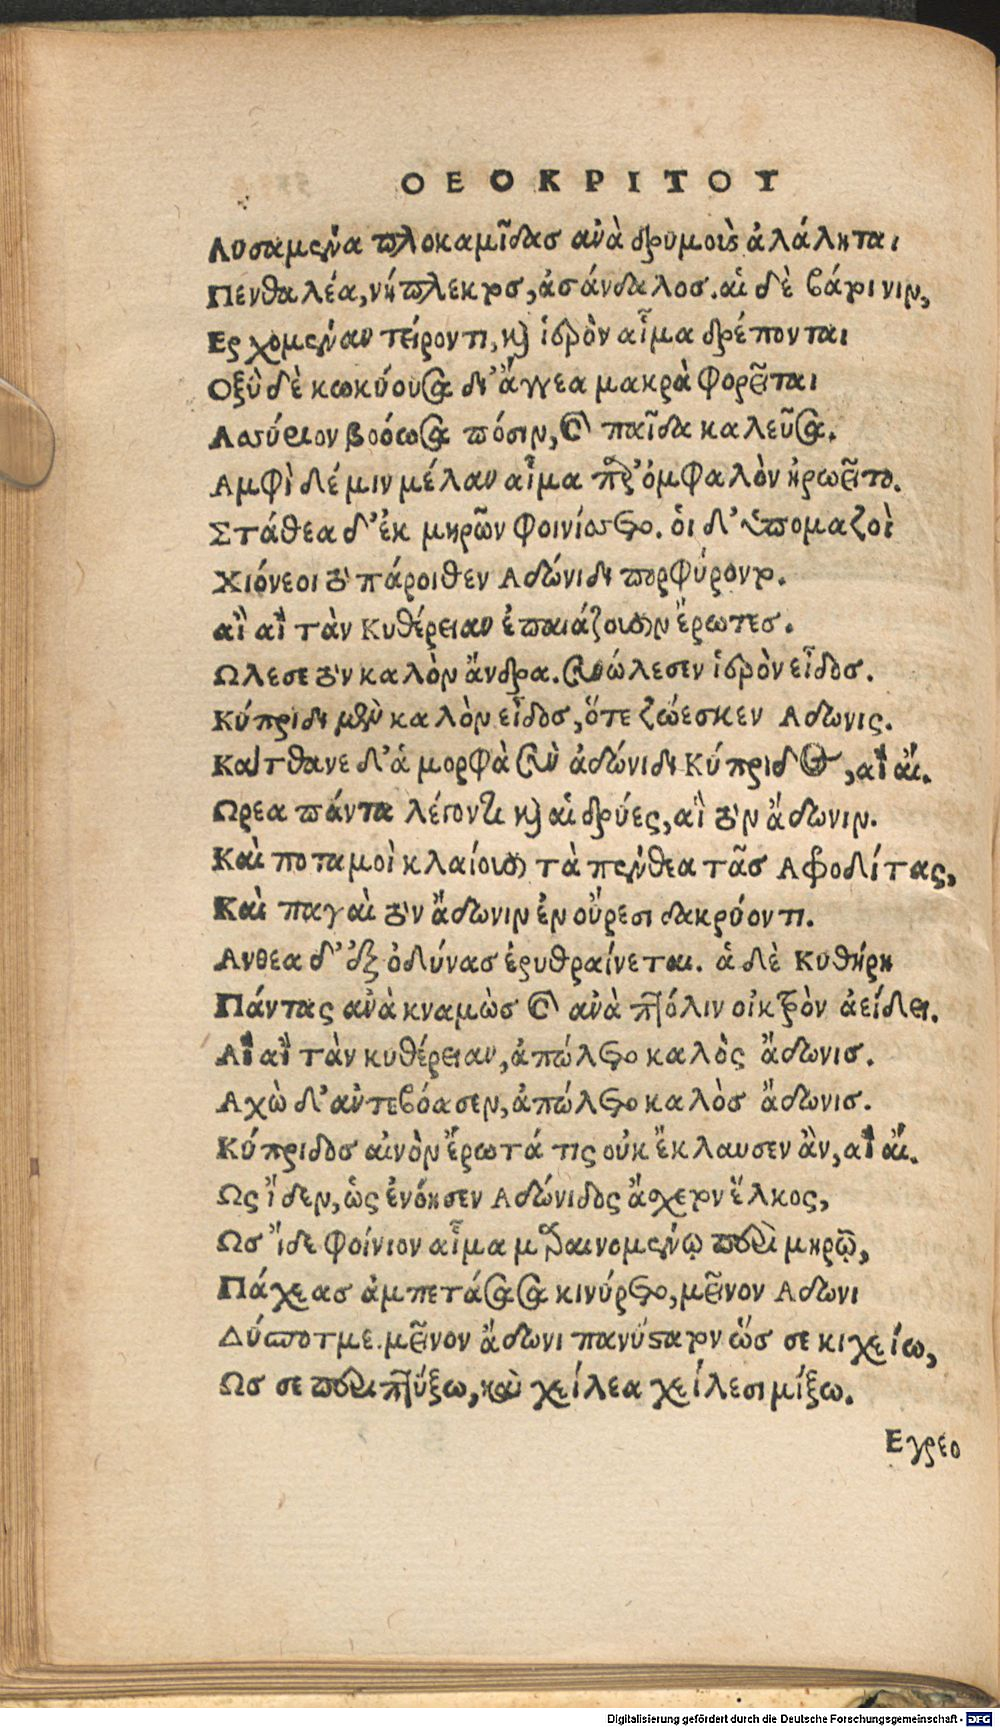 ΘΕΟΚΡΙΤΟΥ
Λυσαμένα πλοκαμῖδας ἀνὰ δρυμοὺς ἀλάληται
Πενθαλέα, νήπλεκτος, ἀσάνδαλος. αἱ δὲ βάτοι νιν,
Ερχομέναν τείροντι, καὶ ἱερὸν αἷμα δρέπονται
Οξὺ δὲ κωκύουσα δι' ἄγγεα μακρὰ φορεῖται
Ασύριον βοόωσα πόσιν, καὶ παῖδα καλεῦσα.
Αμφὶ δέ μιν μέλαν αἷμα παρ' ὀμφαλὸν ᾐωρεῖτο.
Στάθεα δ' ἐκ μηρῶν φοινίσσετο. οἱ δ' ὑπομαζοὶ
Χιόνεοι τὸ πάροιθεν Αδώνιδι πορφύροντο.
αἲ αἲ τὰν Κυθέρειαν ἐπαιάζουσιν ἔρωτες.
Ωλεσε τὸν καλὸν ἄνδρα. συνώλεσεν ἱερὸν εἶδος.
Κύπριδι μὲν καλὸν εἶδος, ὅτε ζώεσκεν Αδωνις.
Κατθανε δ' ἁ μορφὰ σὺν ἀδώνιδι Κύπριδος, αἲ αἴ.
Ωρεα πάντα λέγοντι καὶ αἱ δρύες, αἲ τὸν ἄδωνιν.
Καὶ ποταμοὶ κλαίουσι τὰ πένθεα τᾶς Αφροδίτας,
Καὶ παγαὶ τὸν ἄδωνιν ἐν οὔρεσι δακρύοντι.
Ανθεα δ' ἐξ ὀδύνας ἐρυθραίνεται. ἁ δὲ Κυθήρη
Πάντας ἀνὰ κναμὼς καὶ ἀνὰ πτόλιν οἰκτρὸν ἀείδει.
Αἲ αἲ τὰν κυθέρειαν, ἀπώλετο καλὸς ἄδωνις.
Αχὼ δ' ἀντεβόασεν, ἀπώλετο καλὸς ἄδωνις.
Κύπριδος αἰνὸν ἔρωτά τις οὐκ ἔκλαυσεν ἂν, αἲ αἴ.
Ως ἴδεν, ὡς ἐνόησεν Αδώνιδος ἄσχετον ἕλκος,
Ως ἴδε φοίνιον αἷμα μαραινομένῳ περὶ μηρῷ,
Πάχεας ἀμπετάσασα κινύρετο, μεῖνον Αδωνι
Δύσποτμε. μεῖνον ἄδωνι πανύστατον ὥς σε κιχείω,
Ως σε περιπτύξω, καὶ χείλεα χείλεσι μίξω.
Εγρεο
Digitalisierung gefördert durch die Deutsche Forschungsgemeinschaft - DFG